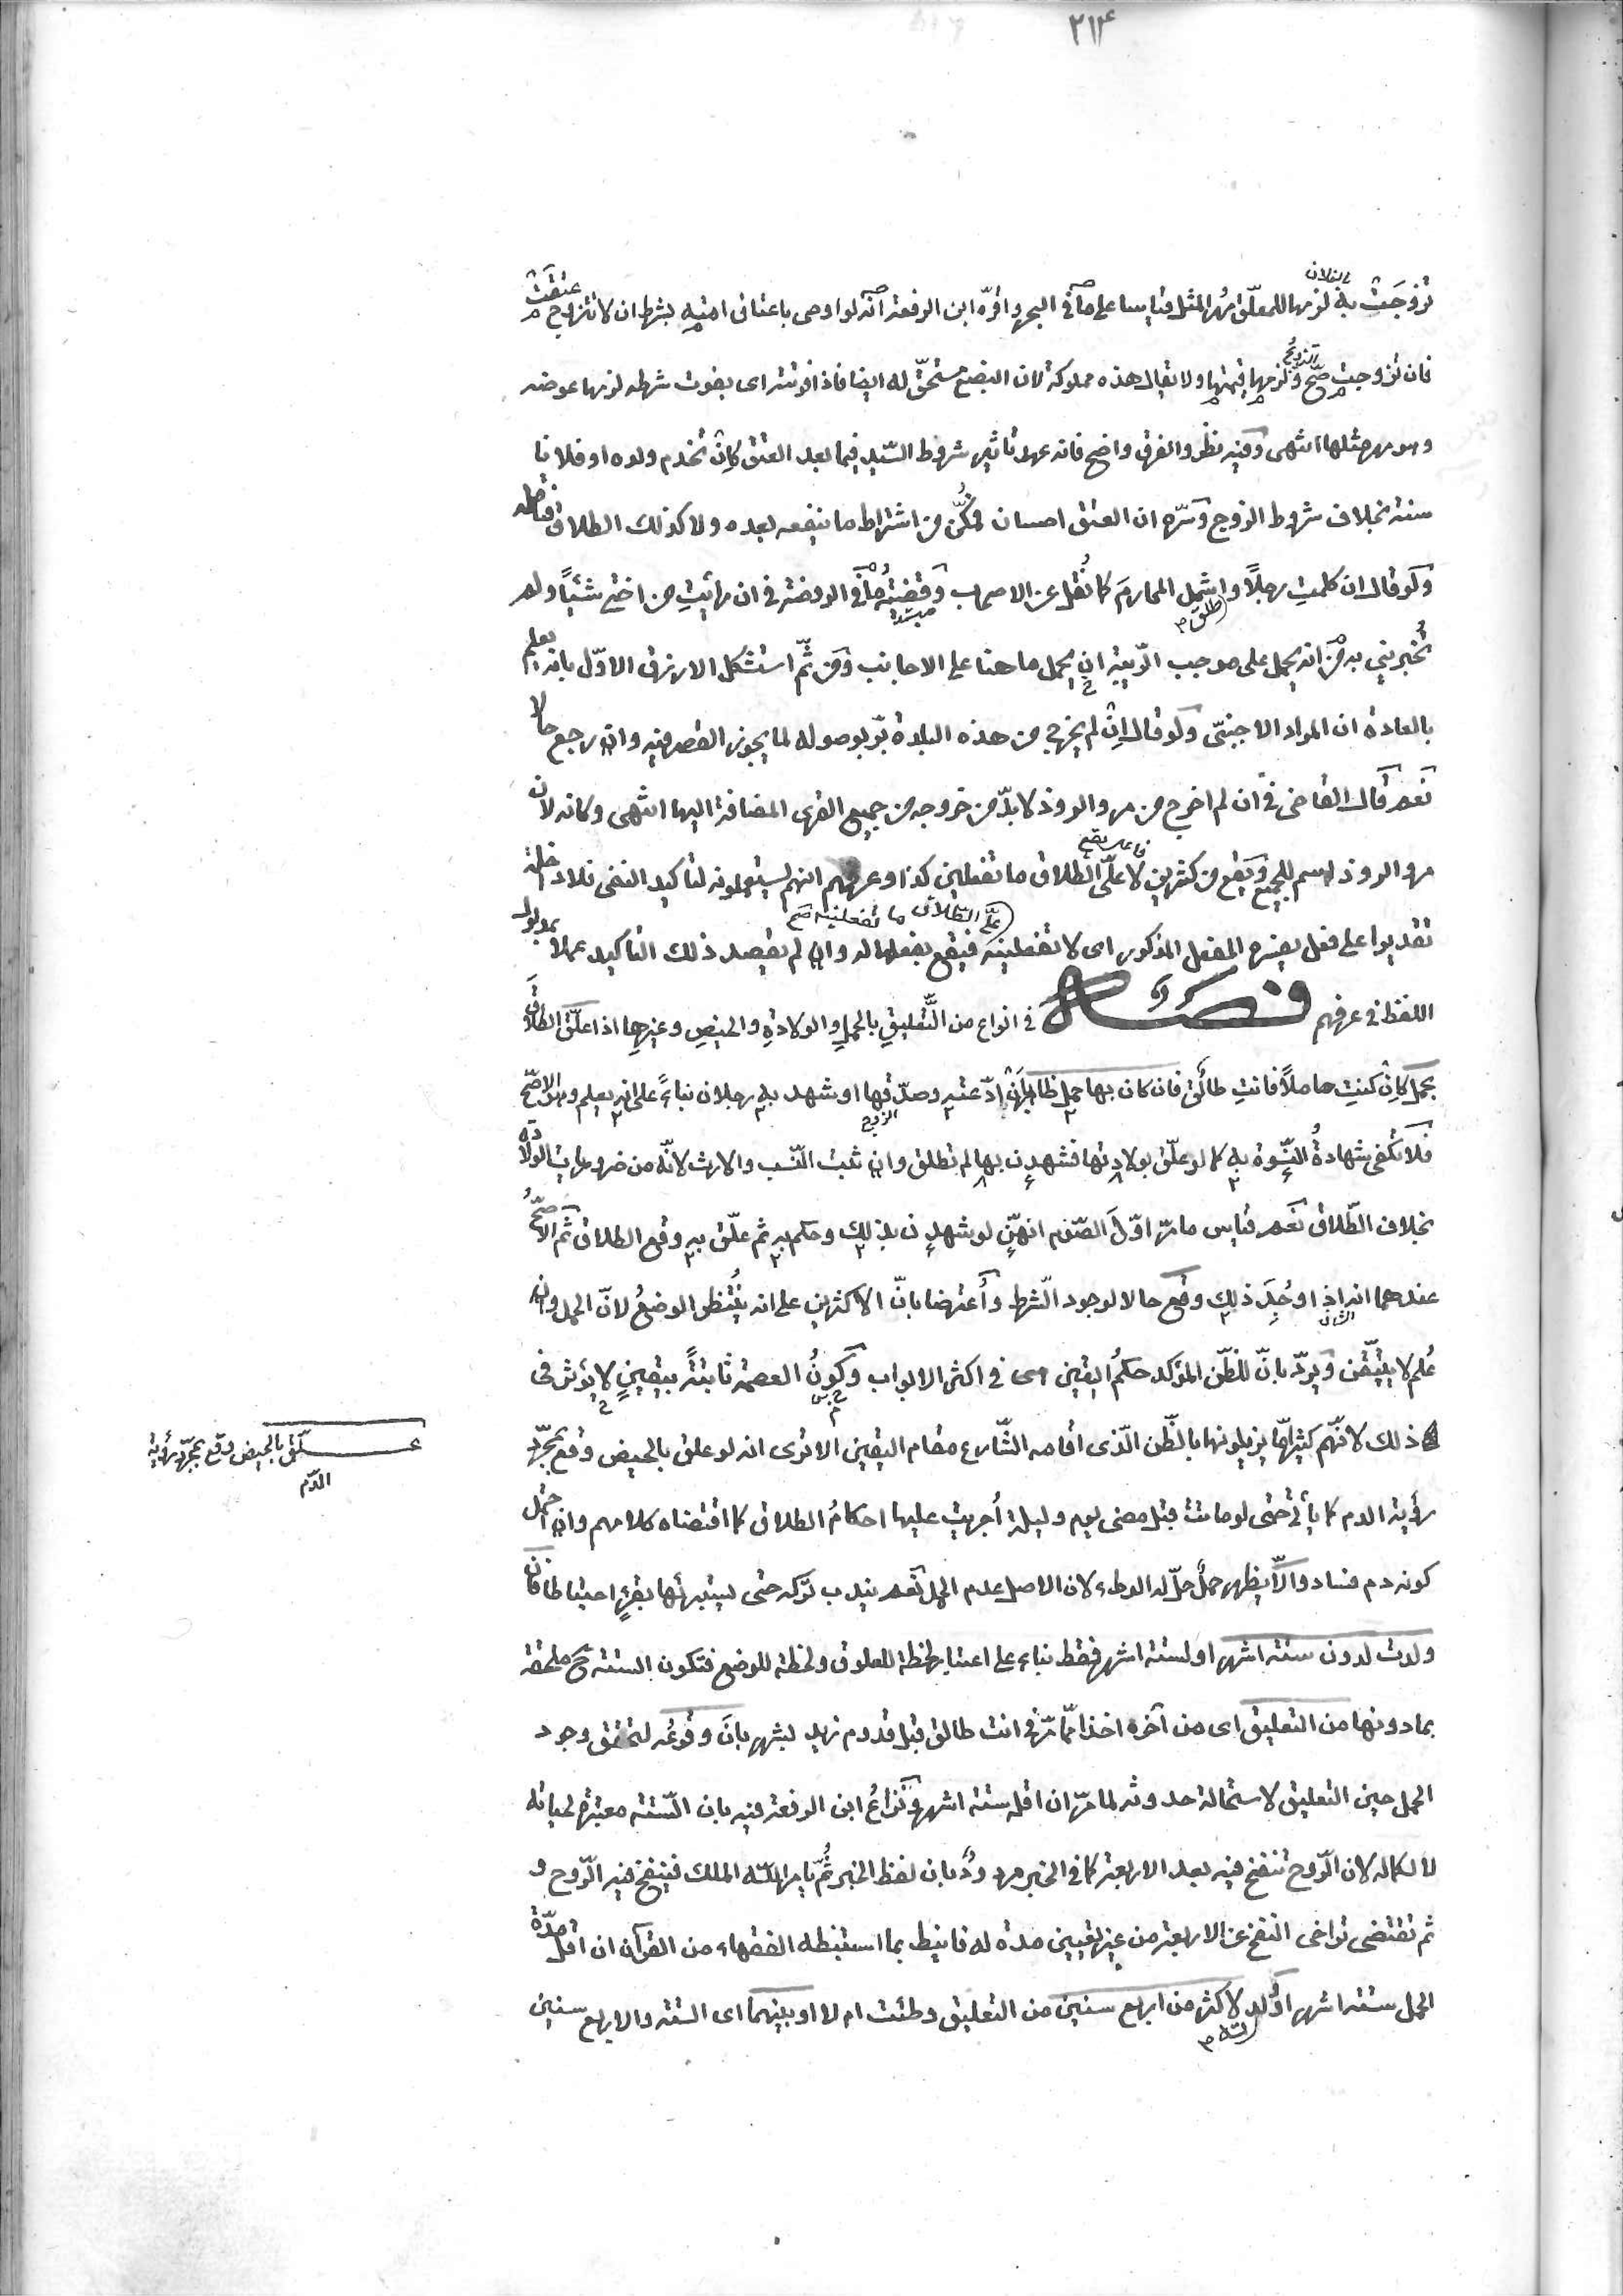 ٢١٤
تزوجَتْ به لزمها للمعلّق مهر المثل قياسا على ما فى البحر واقرّه ابن الرفعة انّه لو اوصى باعتاق امته بشرط ان لا تتزوج عتقت
بفلان
فان تزوجت صحّ ولزمها قيمتها ولا يقال هذه مملوكة لان البضع مستحقّ له ايضا فاذا فوّتته اى بفوت شرطه لزمها عوضه
التزويج
وهو مهر مثلها انتهى وفيه نظر والفرق واضح فانه عهد تاثير شروط السّيد فيما بعد العتق كإن تخدم ولده او فلانا
سنة بخلاف شروط الزوج وسرّه ان العتق احسان فمُكّن من اشتراط ما ينفعه بعده ولا كذلك الطلاق فتامله
ولو قال ان كلمتِ رجلاً واشمل المحارمَ كما نُقل عن الاصحاب وقضيّةُ ما فى الروضة فى ان رايتِ من اختى شيئاً ولم
طلق م
تُخبرينى به من انه يحمل على موجب الرّيبة ان يحمل ما هنا على الاجانب ومن ثَمّ استشكل الازرق الاوّل بانه يعلم
بالعادة ان المراد الاجنبىّ ولو قال إن لم يخرج من هذه البلدة برّ بوصوله لما يجوز القصر فيه وان رجع حالا
نعم قال القاضى فى ان لم اخرج من مرو الروذ لا بدّ من خروجه من جميع القرى المضافة اليها انتهى وكانه لان
مرو الروذ اسم للجميع ويقع من كثرين لا علىّ الطلاق ما تفعلين كذا وعرفهم انهم يستعملونه لتأكيد النفى فلا داخلة
علىّ الطلاق ما تفعلينه صح
تقديرا على فعل يفسره الفعل المذكور اى لا تفعلينه فيقع بفعلها له وان لم يقصد ذلك التأكيد عملا بمدلول
اللفظ فى عرفهم فصل فى انواع من التّعليقِ بالحملِ والولادةِ والحيضِ وغيرِها اذا علّق الطلاق
بحمل كإن كنتِ حاملاً فانتِ طالق فان كان بها حمل ظاهر بأن ادّعته وصدّقها او شهد به رجلان بناءً على انه يعلم وهو الاصحّ
الزوج
فلا تكفى شهادةُ النّسوة به كما لو علّق بولادتها فشهدن بها لم تطلق وان ثبت النّسب والارث لانّه من ضروريات الولادة
بخلاف الطّلاق نعم قياس ما مرّ اوّلَ الصّوم انهنّ لو شهدن بذلك وحكم به ثم علّق به وقع الطلاق ثم الاصحّ
عندهما انه اذا وُجِدَ ذلك وقع حالا لوجود الشّرط وأُعترضا بانّ الاكثرين على انه يُنتظر الوضعُ لانّ الحمل وان
الشان
عُلم لا يتيقّن ويردّ بانّ للظّن المؤكد حكمَ اليقين فى اكثر الابواب وكونُ العصمة ثابتةً بيقينٍ لا يؤثر فى
ذلك لانّهم كثيرامّا يزيلونها بالظّن الّذى اقامه الشّارع مقام اليقين الا ترى انه لو علق بالحيض وقع بمجرّد
علّق بالحيض وقع بمجرّد رؤية
الدّم
رؤية الدم كما يأتى حتى لو ماتت قبل مضى يوم وليلة أُجريت عليها احكامُ الطلاق كما اقتضاه كلامهم وان احتمل
كونه دم فساد والاّ يظهر حملٌ حلّ له الوطء لان الاصل عدم الحمل نعم يندب تركه حتى يستبرئها بقرءٍ احتياطا فان
ولدت لدون ستة اشهر او لستة اشهر فقط بناء على اعتبار لحظة للعلوق ولحظة للوضع فتكون الستة ح ملحقة
بما دونها من التعليق اى من آخره اخذا ممّا مرّ فى انت طالق قبل قدوم زيد بشهر بانَ وقوعُه لتحقق وجود
الحمل حين التعليق لاستحالة حدوثه لما مرّ ان اقله ستة اشهر ونزاعُ ابن الرفعة فيه بان السّتة معتبرة لحياته
لا لكماله لان الرّوح تنفخ فيه بعد الاربعة كما فى الخبر مردودٌ بان لفظ الخبر ثُمّ يأمر اللّه الملك فينفخ فيه الرّوح و
ثم تقتضى تراخى النفخ عن الاربعة من غير تعيين مدة له فانيط بما استنبطه الفقهاء من القرآن ان اقل مدّة
الحمل ستة اشهر او ولد لاكثر من اربع سنين من التعليق وطئت ام لا او بينهما اى الستة والاربع سنين